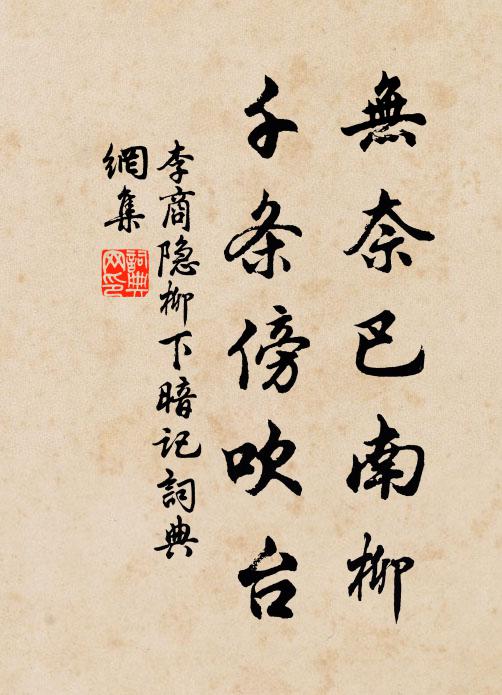 無奈巴南柳
千条傍吹台
李商隐柳下暗记詞典
網集
詞典
网印